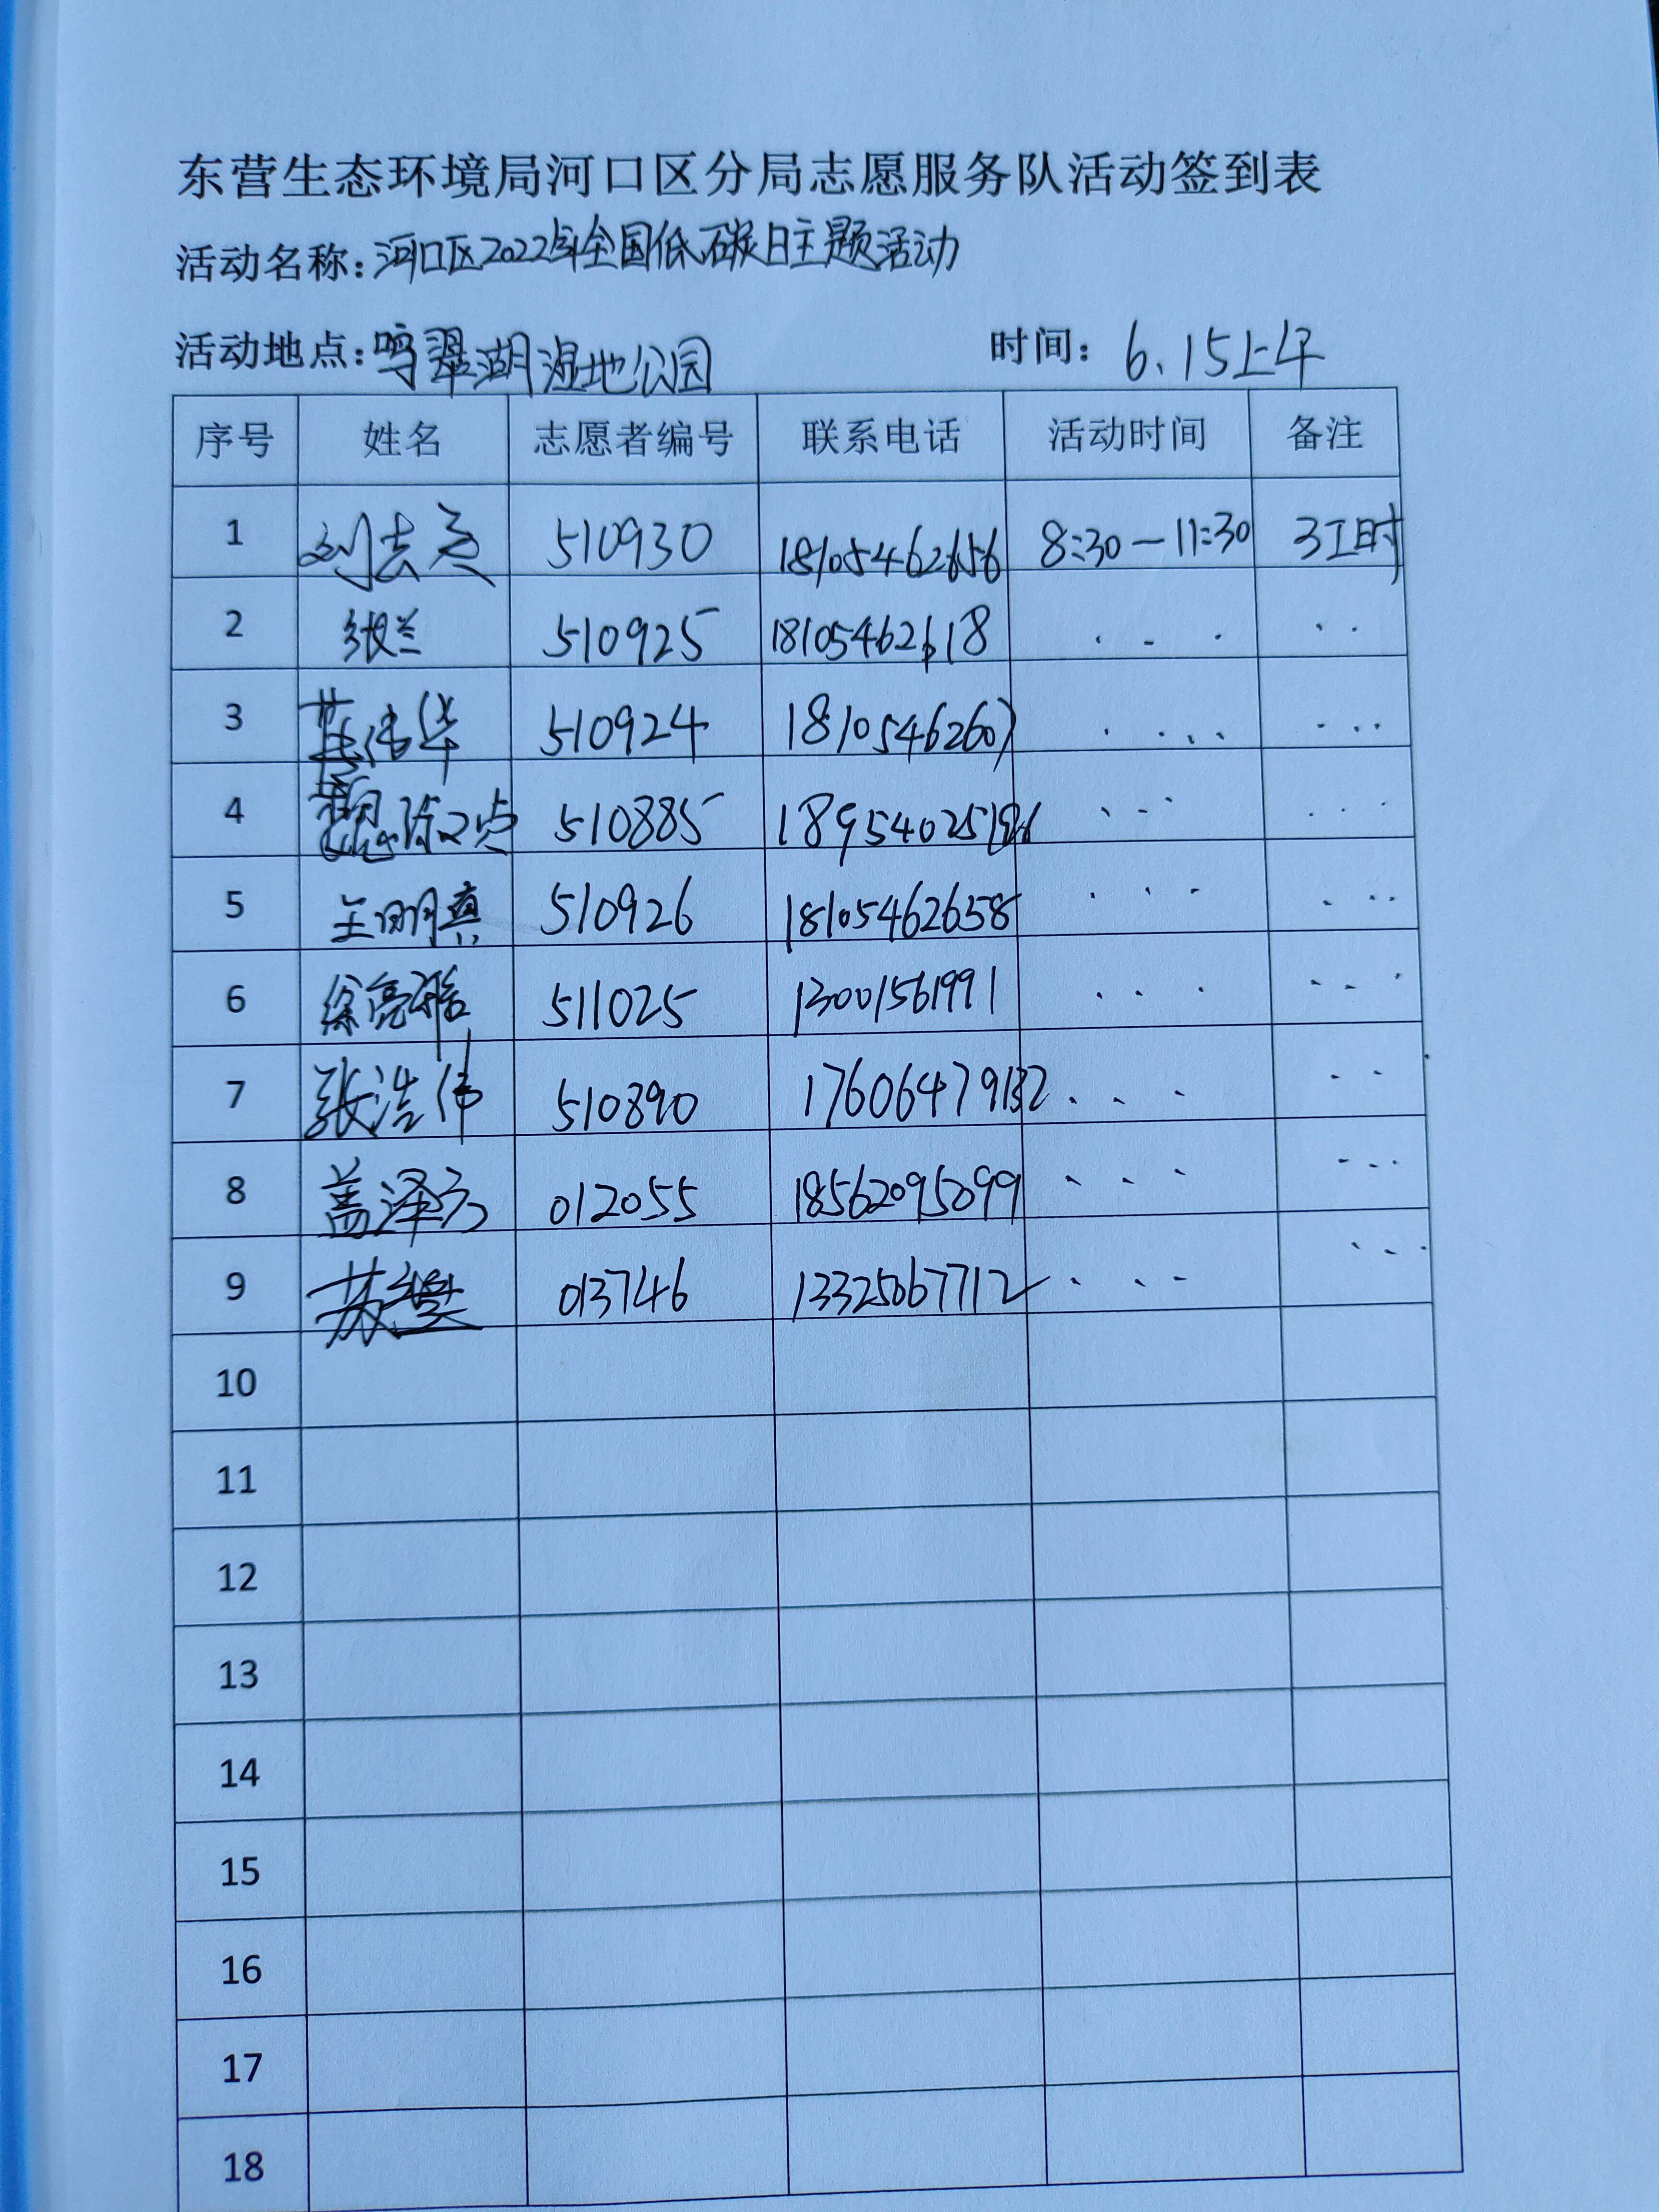 东营生态环境局河口区分局志愿服务队活动签到表
活动名称:河口区2022年全国低碳日主题活动
活动地点:鸣翠湖湿地公园 时间: 6.15上午
序号 姓名 志愿者编号 联系电话 活动时间 备注
1 510930 18105462656 8:30—11:30 3工时
2 张兰 510925 18105462618
3 510924 18105462607
4 510885
5 王明真 510926 18105462658
6 511025 13001561991
7 张洁伟 510890 17606479132
8 盖泽 012055 18562095099
9 苏 013746 13325067712
10
11
12
13
14
15
16
17
18